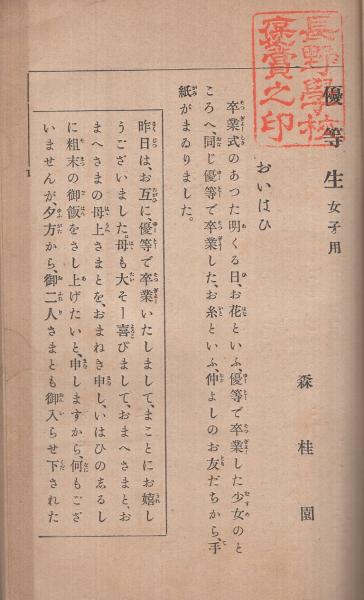 長野學校
褒賞之印
優等生 女子用
森桂園
おいはひ
卒業式のあつた明くる日、お花といふ、優等で卒業した少女のと
ころへ、同じ優等で卒業した、お糸といふ、仲よしのお友だちから、手
紙がまゐりました。
昨日は、お互に、優等で卒業いたしまして、まことにお嬉し
うございました、母も大そー喜びまして、おまへさまと、お
まへさまの母上さまとを、おまねき申し、いはひのゐるし
に粗末の御飯をさし上げたいと、申しますから、何もござ
いませんが、夕方から、御二人さまとも御入らせ下された
1